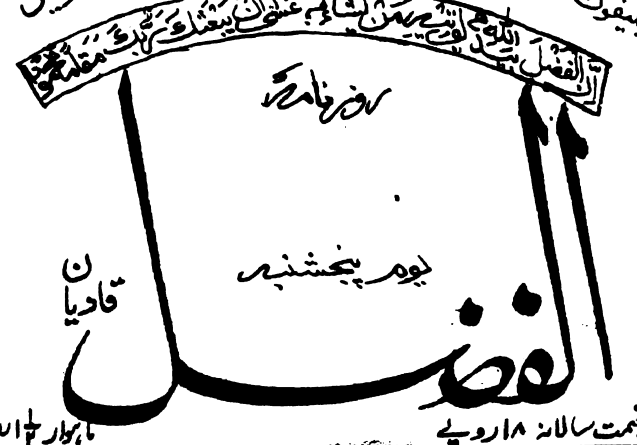 ٹیلیفون
ان الفضل بید اللہ یؤتیہ من یشاء عسٰی ان یبعثک ربک مقاما محمودا
روزنامہ
الفضل
یوم پنجشنبہ
قادیان
قیمت سالانہ ۱۸ روپے
ماہوار